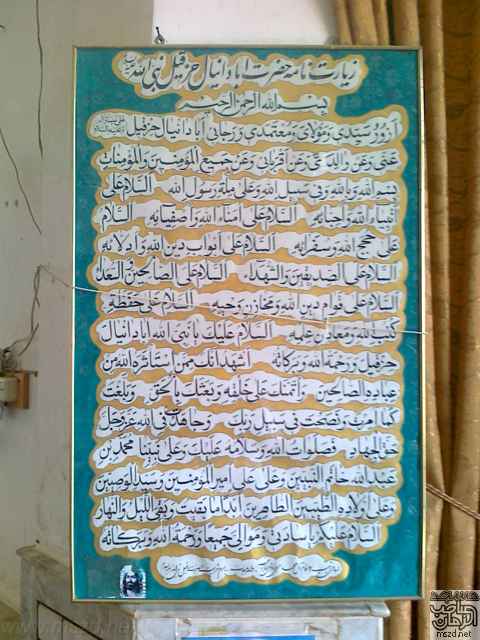 زیارت نامه حضرت ابا دانیال حزقیل نبی الله
بسم الله الرحمن الرحیم
ازور سیدی و مولای و معتمدی و رجائی ابا دانیال حزقیل
عنی و عن والدی و عن اقربائی و عن جمیع المؤمنین والمؤمنات
بسم الله وبالله وفی سبیل الله وعلی ملة رسول الله السلام علی
انبیاء الله واحبائه السلام علی امناء الله واصفیائه السلام
علی حجج الله وسفرائه السلام علی ابواب دین الله وادلائه
السلام علی الصدیقین والشهداء السلام علی الصالحین والسعداء
السلام علی قوام دین الله ومخازن وحیه السلام علی حفظة
کتب الله ومعادن علمه السلام علیک یا نبی الله ابا دانیال
حزقیل ورحمة الله وبرکاته اشهد انک ممن استأثره الله من
عباده الصالحین وائتمنک علی خلقه وبعثک بالحق وبلغت
کما امرت ونصحت فی سبیل ربک وجاهدت فی الله عزوجل
حق الجهاد فصلوات الله وسلامه علیک وعلی نبینا محمد بن
عبدالله خاتم النبیین وعلی علی امیر المؤمنین وسید الوصیین
وعلی اولاده الطیبین الطاهرین ابدا ما بقیت وبقی اللیل والنهار
السلام علیکم یا سادتی وموالی جمیعا ورحمة الله وبرکاته
www.mszd.net
mszd.net